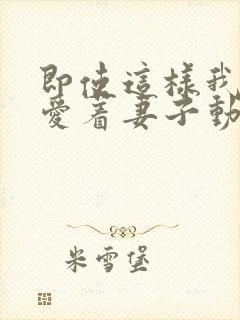 即使這樣我
愛着妻子動
米雪堡